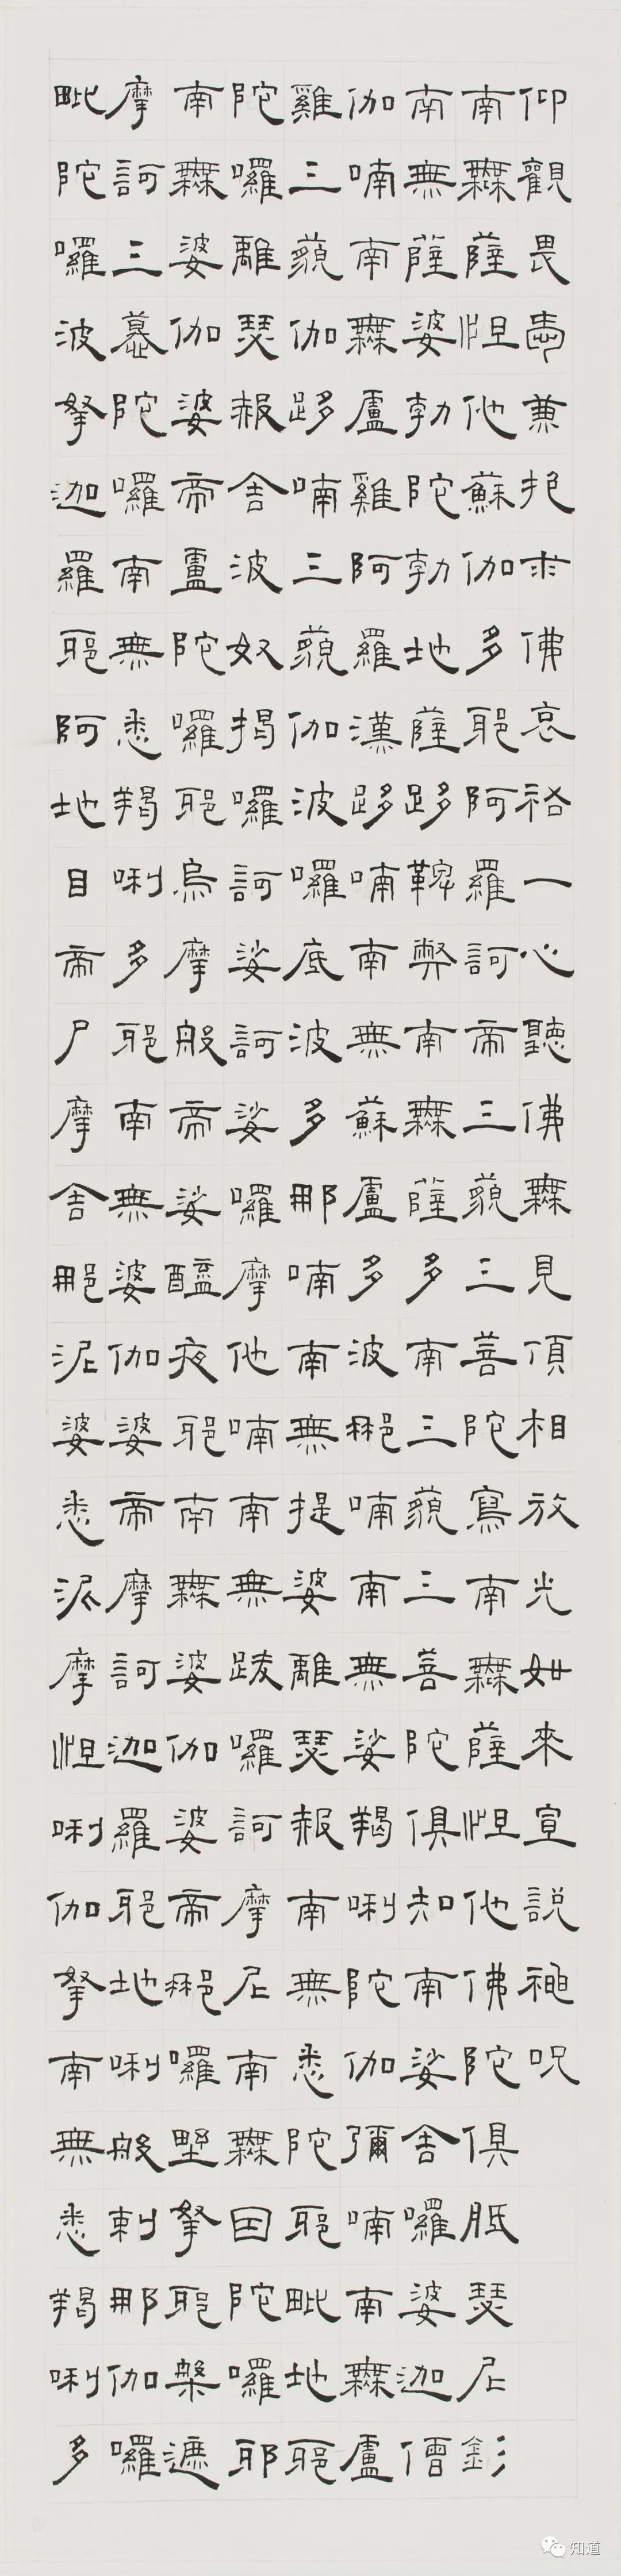 仰觀畏愛兼抱求佛哀祐一心聽佛無見頂相放光如來宣說神呪
南無薩怛他蘇伽多耶阿羅訶帝三藐三菩陀寫南無薩怛他佛陀俱胝瑟尼釤
南無薩婆勃陀勃地薩跢鞞弊南無薩多南三藐三菩陀俱知南娑舍囉婆迦僧
伽喃南無盧雞阿羅漢跢喃南無蘇盧多波那喃南無娑羯唎陀伽彌喃南無盧
雞三藐伽跢喃三藐伽波囉底波多那喃南無提婆離瑟赧南無悉陀耶毗地耶
陀囉離瑟赧舍波奴揭囉訶娑訶娑囉摩他喃南無跋囉訶摩尼南無因陀囉耶
南無婆伽婆帝盧陀囉耶烏摩般帝娑醯夜耶南無婆伽婆帝那囉野拏耶槃遮
摩訶三慕陀囉南無悉羯唎多耶南無婆伽婆帝摩訶迦羅耶地唎般剌那伽囉
毗陀囉波拏迦羅耶阿地目帝尸摩舍那泥婆悉泥摩怛唎伽拏南無悉羯唎多
知道